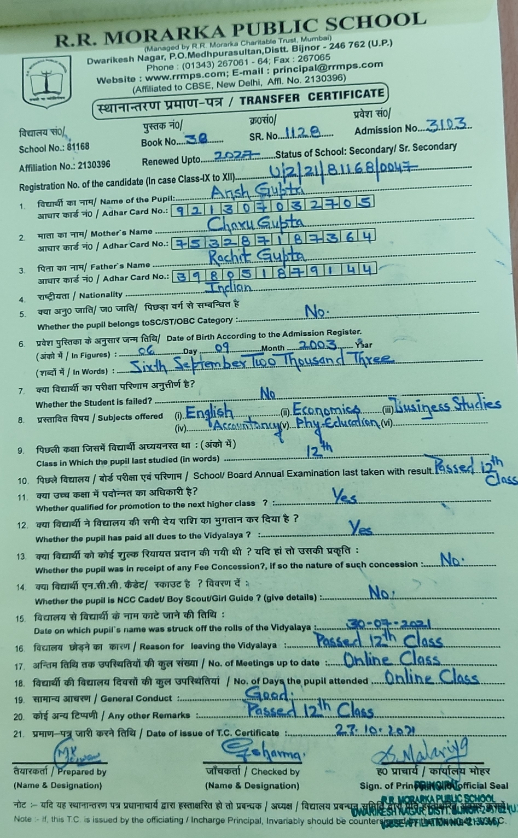 R.R. MORARKA PUBLIC SCHOOL
(Managed by R.R. Morarka Charitable Trust, Mumbai)
Dwarikesh Nagar, P.O.Medhpurasultan,Distt. Bijnor - 246 762 (U.P.)
Phone : (01343) 267061 - 64; Fax : 267065
Website : www.rrmps.com; E-mail : principal@rrmps.com
(Affiliated to CBSE, New Delhi, Affl. No. 2130396)
स्थानान्तरण प्रमाण-पत्र / TRANSFER CERTIFICATE
विद्यालय सं०/ पुस्तक नं०/ क्र०सं०/ प्रवेश सं०/
School No.: 81168 Book No. 38 SR. No. 1128 Admission No. 3103
Affiliation No.: 2130396 Renewed Upto 2027 Status of School: Secondary/ Sr. Secondary
Registration No. of the candidate (In case Class-IX to XII) U/2/21/81168/0047
1. विद्यार्थी का नाम/ Name of the Pupil: Ansh Gupta
आधार कार्ड नं० / Adhar Card No.: 921307032705
2. माता का नाम/ Mother's Name Charu Gupta
आधार कार्ड नं० / Adhar Card No.: 753287187364
3. पिता का नाम/ Father's Name Rachit Gupta
आधार कार्ड नं० / Adhar Card No.: 398051879144
4. राष्ट्रीयता / Nationality Indian
5. क्या अनु० जाति/ ज० जाति/ पिछड़ा वर्ग से सम्बन्धित है
Whether the pupil belongs toSC/ST/OBC Category : No.
6. प्रवेश पुस्तिका के अनुसार जन्म तिथि/ Date of Birth According to the Admission Register.
(अंको में / In Figures) : 06 Day 09 Month 2003 Year
(शब्दों में / In Words) : Sixth September Two Thousand Three
7. क्या विद्यार्थी का परीक्षा परिणाम अनुत्तीर्ण है?
Whether the Student is failed? No
8. प्रस्तावित विषय / Subjects offered (i) English (ii) Economics (iii) Business Studies
(iv) Accountancy (v) Phy. Education (vi)
9. पिछली कक्षा जिसमें विद्यार्थी अध्ययनरत था : (अंको में)
Class in Which the pupil last studied (in words) 12th
10. पिछले विद्यालय / बोर्ड परीक्षा एवं परिणाम / School/ Board Annual Examination last taken with result Passed 12th Class
11. क्या उच्च कक्षा में पदोन्नत का अधिकारी है?
Whether qualified for promotion to the next higher class ? : Yes
12. क्या विद्यार्थी ने विद्यालय की सभी देय राशि का भुगतान कर दिया है ?
Whether the pupil has paid all dues to the Vidyalaya ? : Yes
13. क्या विद्यार्थी को कोई शुल्क रियायत प्रदान की गयी थी ? यदि हां तो उसकी प्रकृति :
Whether the pupil was in receipt of any Fee Concession?, If so the nature of such concession : No.
14. क्या विद्यार्थी एन.सी.सी. कैडेट/ स्काउट है ? विवरण दें :
Whether the pupil is NCC Cadet/ Boy Scout/Girl Guide ? (give details) : No.
15. विद्यालय से विद्यार्थी के नाम काटे जाने की तिथि :
Date on which pupil's name was struck off the rolls of the Vidyalaya : 30-07-2021
16. विद्यालय छोड़ने का कारण / Reason for leaving the Vidyalaya : Passed 12th Class
17. अन्तिम तिथि तक उपस्थितियों की कुल संख्या / No. of Meetings up to date : Online Class
18. विद्यार्थी की विद्यालय दिवसों की कुल उपस्थितियां / No. of Days the pupil attended Online Class
19. सामान्य आचरण / General Conduct : Good.
20. कोई अन्य टिप्पणी / Any other Remarks : Passed 12th Class.
21. प्रमाण-पत्र जारी करने तिथि / Date of issue of T.C. Certificate : 27.10.2021
तैयारकर्ता / Prepared by जाँचकर्ता / Checked by ह० प्राचार्य / कार्यालय मोहर
(Name & Designation) (Name & Designation) Sign. of PRINCIPAL official Seal
R.R. MORARKA PUBLIC SCHOOL
नोट :- यदि यह स्थानान्तरण पत्र प्रधानाचार्य द्वारा हस्ताक्षरित हो तो प्रबन्धक / अध्यक्ष / विद्यालय
DWARIKESH NAGAR, DISTT. BIJNOR
Note :- If, this T.C. is issued by the officiating / Incharge Principal, Invariably should be